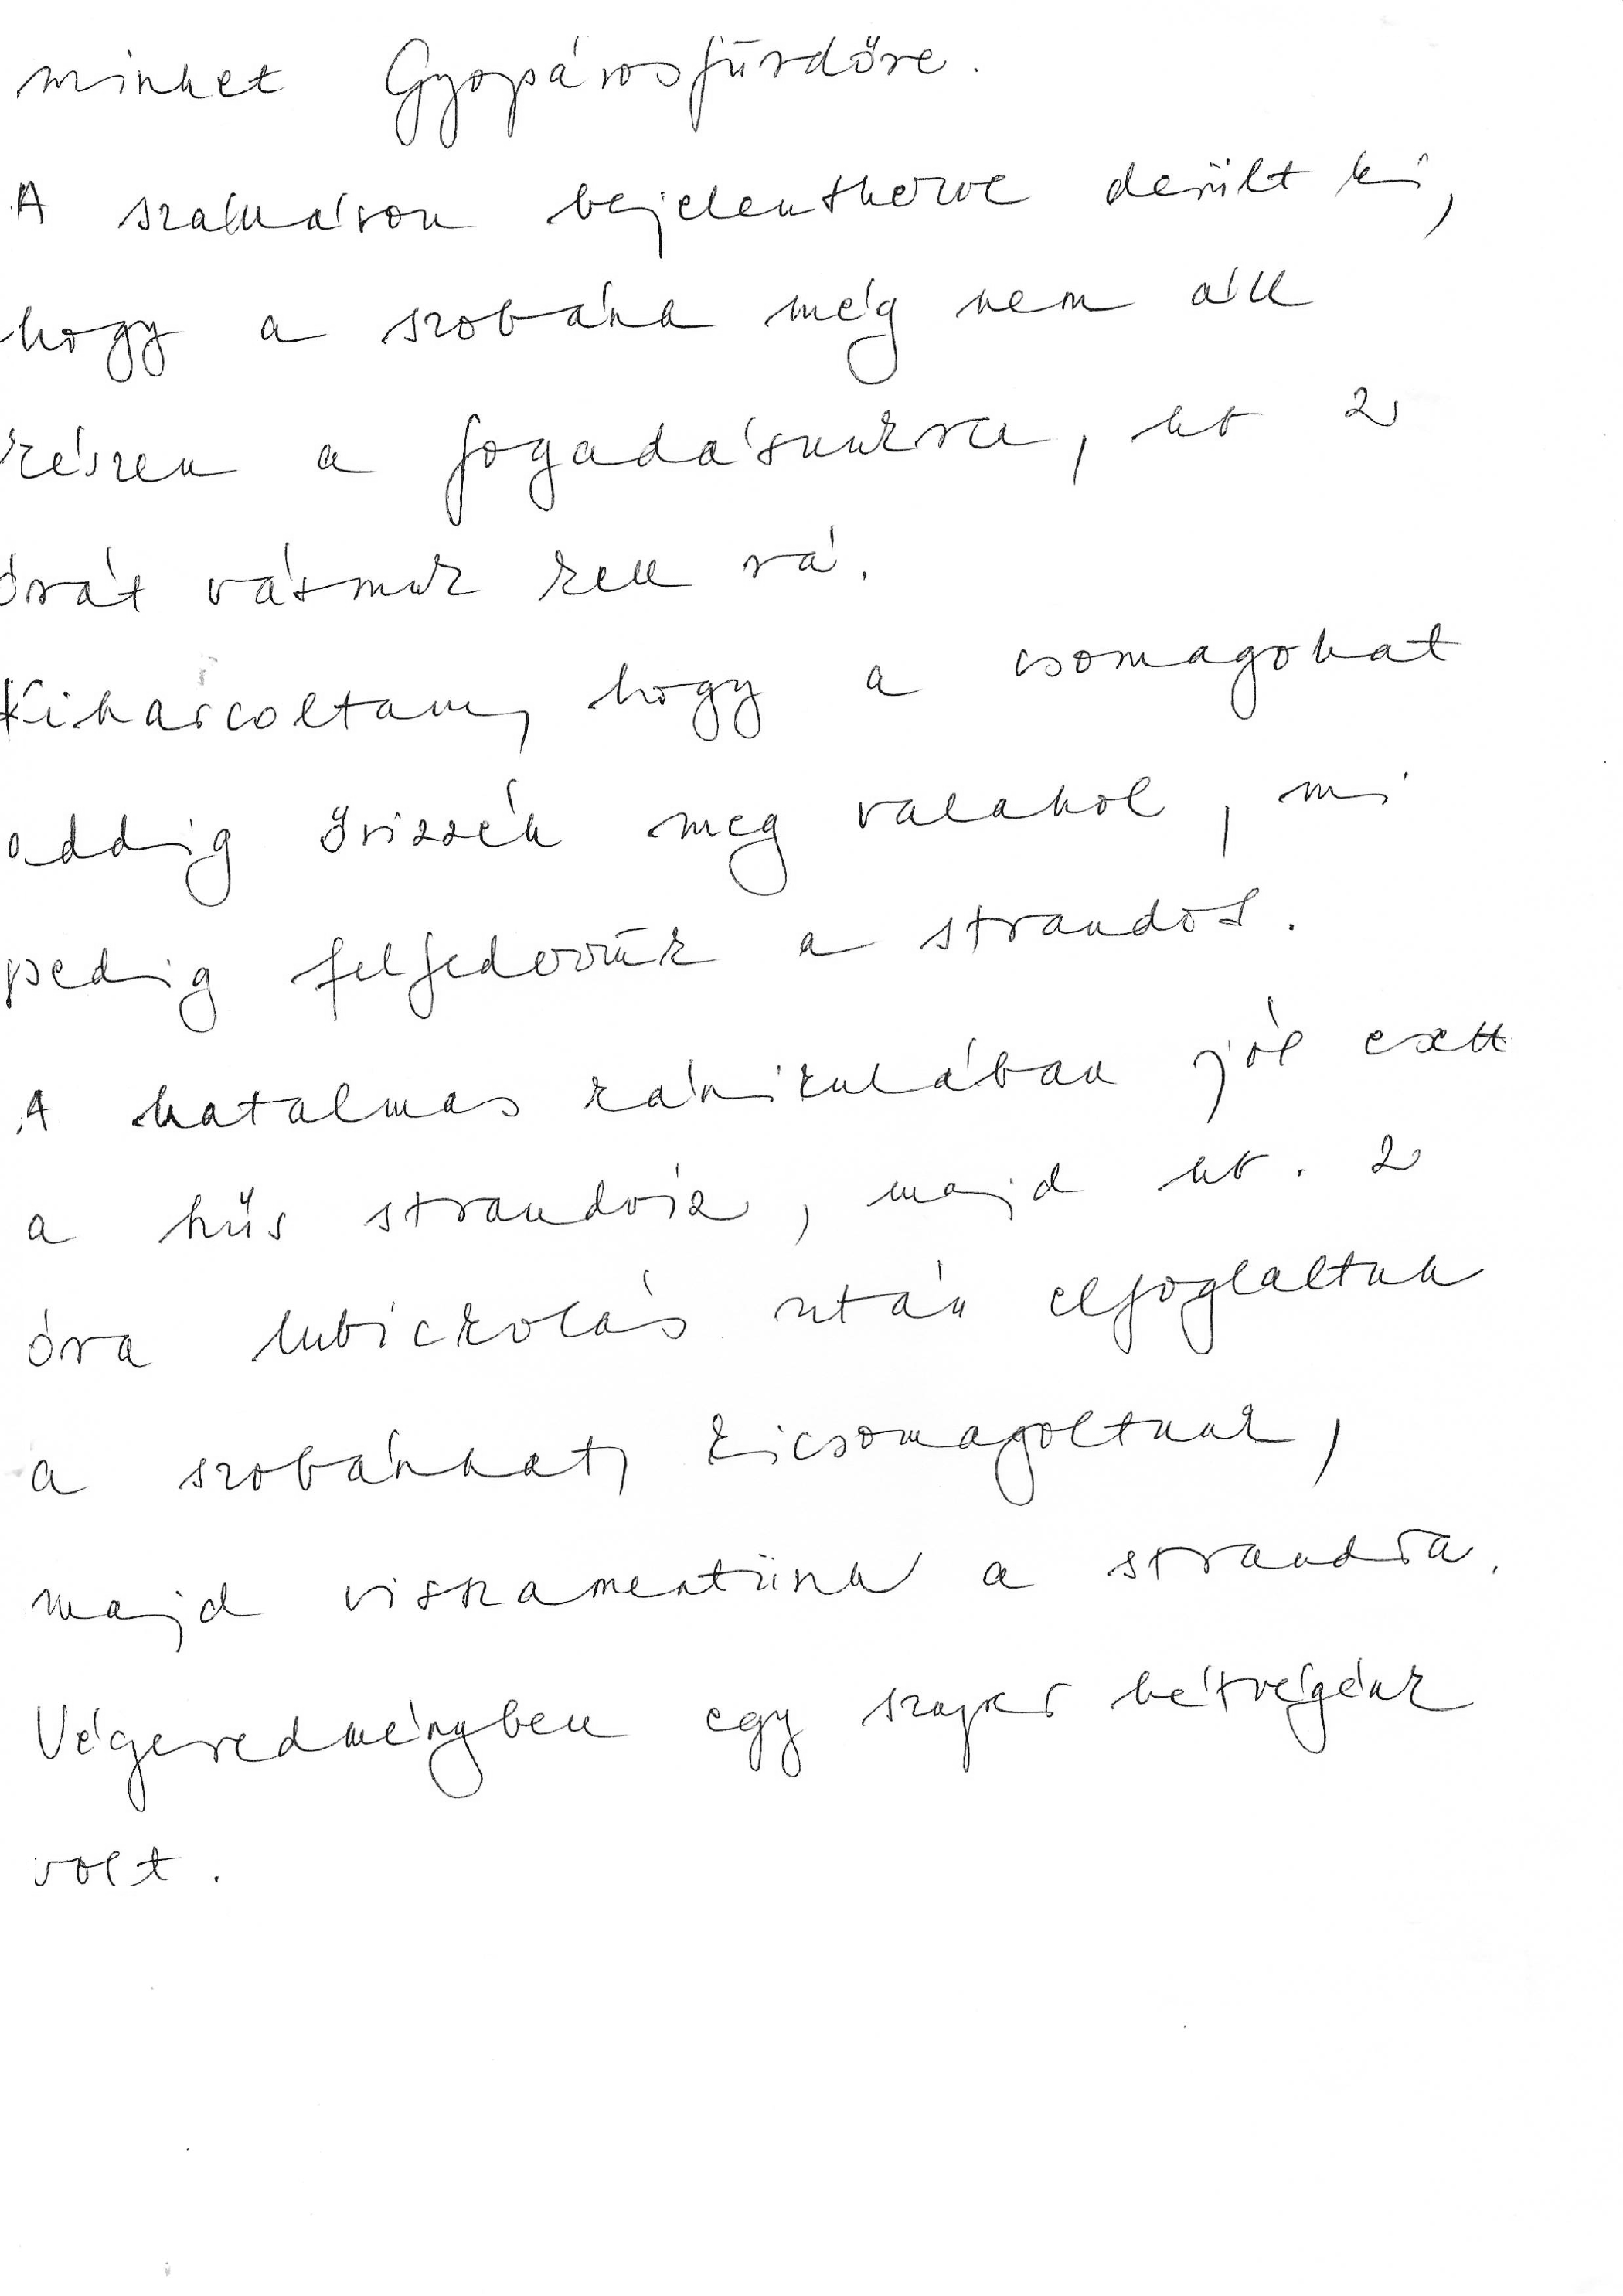 minket Gyopárosfürdőre.
A szálláson bejelentkezve derült ki,
hogy a szobánk még nem áll
készen a fogadásunkra, kb 2
órát várnunk kell rá.
Kiharcoltam, hogy a csomagokat
addig őrizzék meg valahol, mi
pedig felfedezzük a strandot.
A hatalmas kánikulában jól esett
a hűs strandvíz, majd kb. 2
óra lubickolás után elfoglaltuk
a szobánkat, kicsomagoltunk,
majd visszamentünk a strandra.
Végeredményben egy szuper hétvégénk
volt.